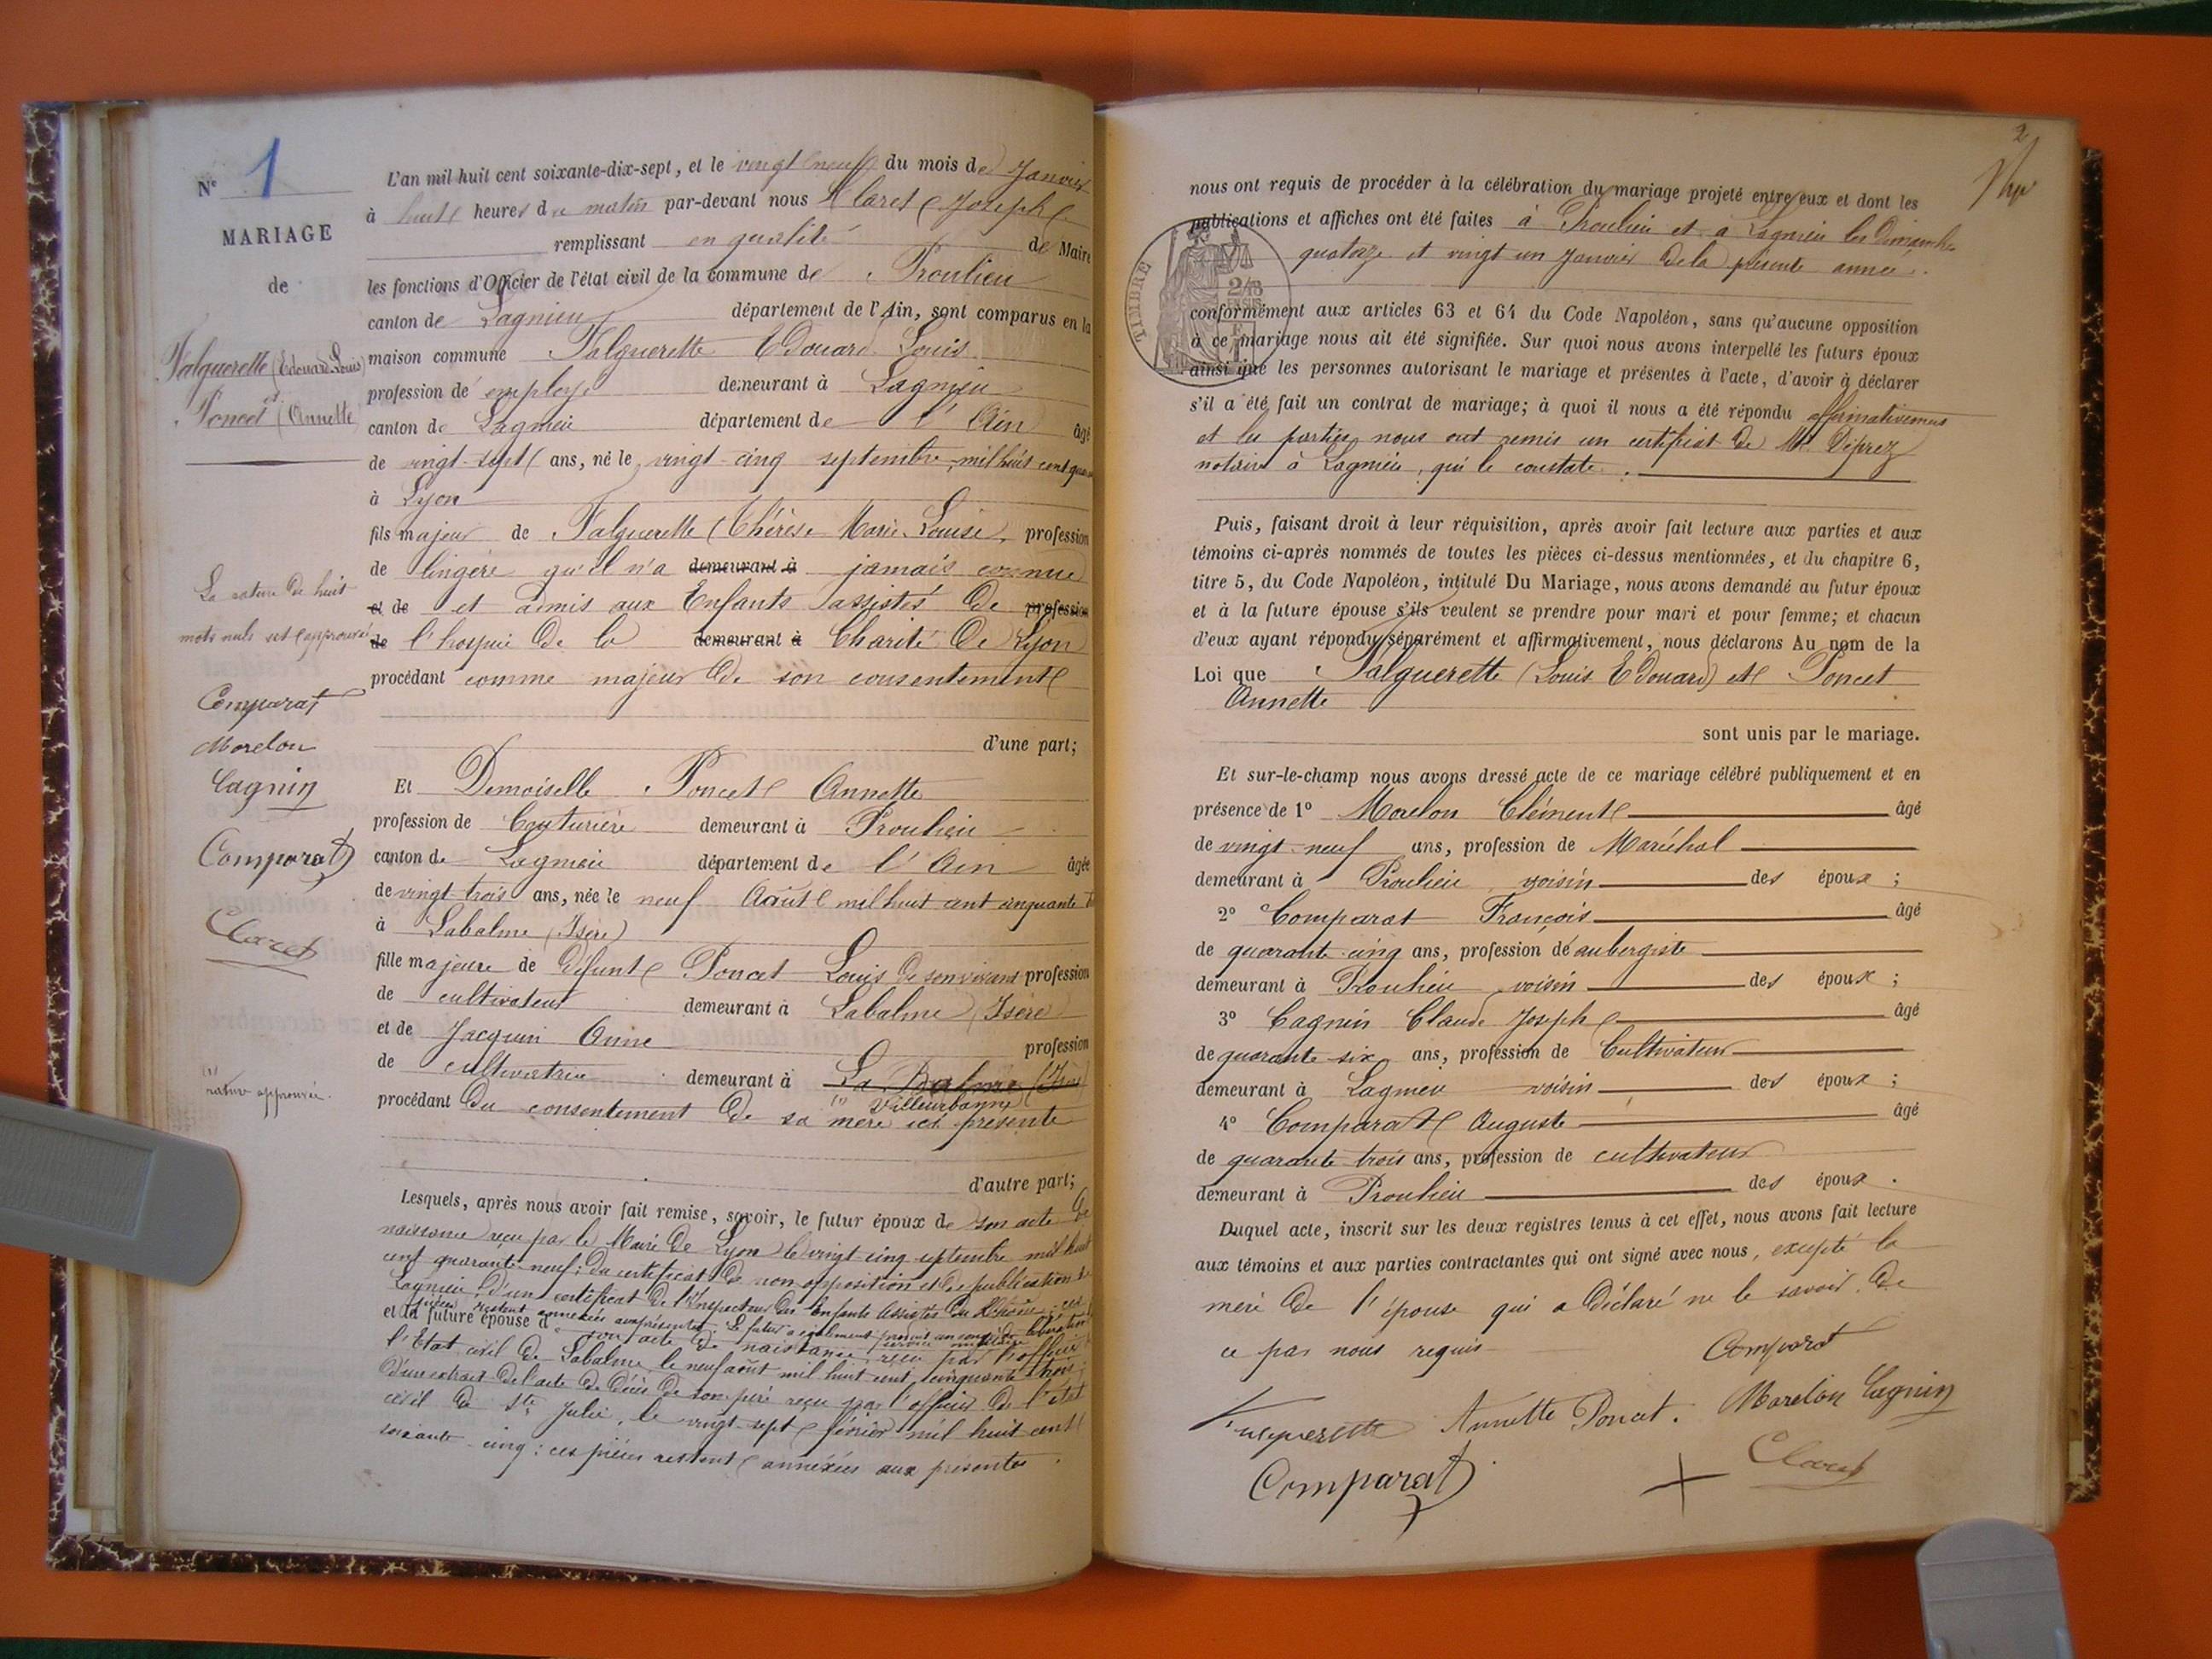 Nº 1
MARIAGE
de
Falguerette (Edouard Louis)
et
Poncet (Annette)
La rature de huit
mots nuls est approuvée
Comparat
Morelon
Cagnin
Comparat
Claret
(1) rature approuvée.
L'an mil huit cent soixante-dix-sept, et le vingt neuf du mois de Janvier
à huit heures du matin par-devant nous Claret Joseph
remplissant en qualité de Maire
les fonctions d'Officier de l'état civil de la commune de Proulieu
canton de Lagnieu département de l'Ain, sont comparus en la
maison commune Falguerette Edouard Louis
profession d'employé demeurant à Lagnieu
canton de Lagnieu département de l'Ain âgé
de vingt-sept ans, né le vingt-cinq septembre mil huit cent
à Lyon
fils majeur de Falguerette Thérèse Marie Louise, profession
de lingère qu'il n'a demeurant à jamais connue
et de et admis aux Enfants assistés de profession
de l'hospice de la demeurant à Charité de Lyon
procédant comme majeur de son consentement
d'une part;
Et Demoiselle Poncet Annette
profession de Couturière demeurant à Proulieu
canton de Lagnieu département de l'Ain âgée
de vingt-trois ans, née le neuf Août mil huit cent cinquante
à Labalme (Isère)
fille majeure de défunt Poncet Louis de son vivant profession
de cultivateur demeurant à Labalme (Isère)
et de Jacquin Anne profession
de cultivatrice demeurant à La Balme (Isère)
(1) Villeurbanne
procédant du consentement de sa mère ici présente
d'autre part;
Lesquels, après nous avoir fait remise, savoir, le futur époux de son acte de
naissance reçu par le Maire de Lyon le vingt-cinq septembre mil huit
cent quarante-neuf; du certificat de non opposition et de publication à
Lagnieu, d'un certificat de l'Inspecteur des Enfants Assistés du Rhône, ces
pièces restent annexées aux présentes. Le futur a également produit un congé de libération
du service militaire
et la future épouse d son acte de naissance reçu par l'officier de
l'Etat civil de Labalme le neuf août mil huit cent cinquante trois;
d'un extrait de l'acte de décès de son père reçu par l'officier de l'état
civil de Ste Julie, le vingt-sept février mil huit cent
soixante-cinq: ces pièces restent annéxées aux présentes.
2
nous ont requis de procéder à la célébration du mariage projeté entre eux et dont les
publications et affiches ont été faites à Proulieu et à Lagnieu les Dimanches
quatorze et vingt un Janvier de la présente année.
TIMBRE
2/10
EN SUS
conformément aux articles 63 et 64 du Code Napoléon, sans qu'aucune opposition
à ce mariage nous ait été signifiée. Sur quoi nous avons interpellé les futurs époux
ainsi que les personnes autorisant le mariage et présentes à l'acte, d'avoir à déclarer
s'il a été fait un contrat de mariage; à quoi il nous a été répondu affirmativement
et les parties nous ont remis un certificat de Me Déprez
notaire à Lagnieu, qui le constate.
Puis, faisant droit à leur réquisition, après avoir fait lecture aux parties et aux
témoins ci-après nommés de toutes les pièces ci-dessus mentionnées, et du chapitre 6,
titre 5, du Code Napoléon, intitulé Du Mariage, nous avons demandé au futur époux
et à la future épouse s'ils veulent se prendre pour mari et pour femme; et chacun
d'eux ayant répondu séparément et affirmativement, nous déclarons Au nom de la
Loi que Falguerette (Louis Edouard) et Poncet
Annette
sont unis par le mariage.
Et sur-le-champ nous avons dressé acte de ce mariage célébré publiquement et en
présence de 1º Morelon Clément âgé
de vingt-neuf ans, profession de Maréchal
demeurant à Proulieu voisin des époux;
2º Comparat François âgé
de quarante-cinq ans, profession d'aubergiste
demeurant à Proulieu voisin des époux;
3º Cagnin Claude Joseph âgé
de quarante-six ans, profession de Cultivateur
demeurant à Lagnieu voisin des époux;
4º Comparat Auguste âgé
de quarante trois ans, profession de cultivateur
demeurant à Proulieu des époux.
Duquel acte, inscrit sur les deux registres tenus à cet effet, nous avons fait lecture
aux témoins et aux parties contractantes qui ont signé avec nous, excepté la
mère de l'épouse qui a déclaré ne le savoir de
ce par nous requis
Comparat
Falguerette Annette Poncet. Morelon Cagnin
Comparat Claret